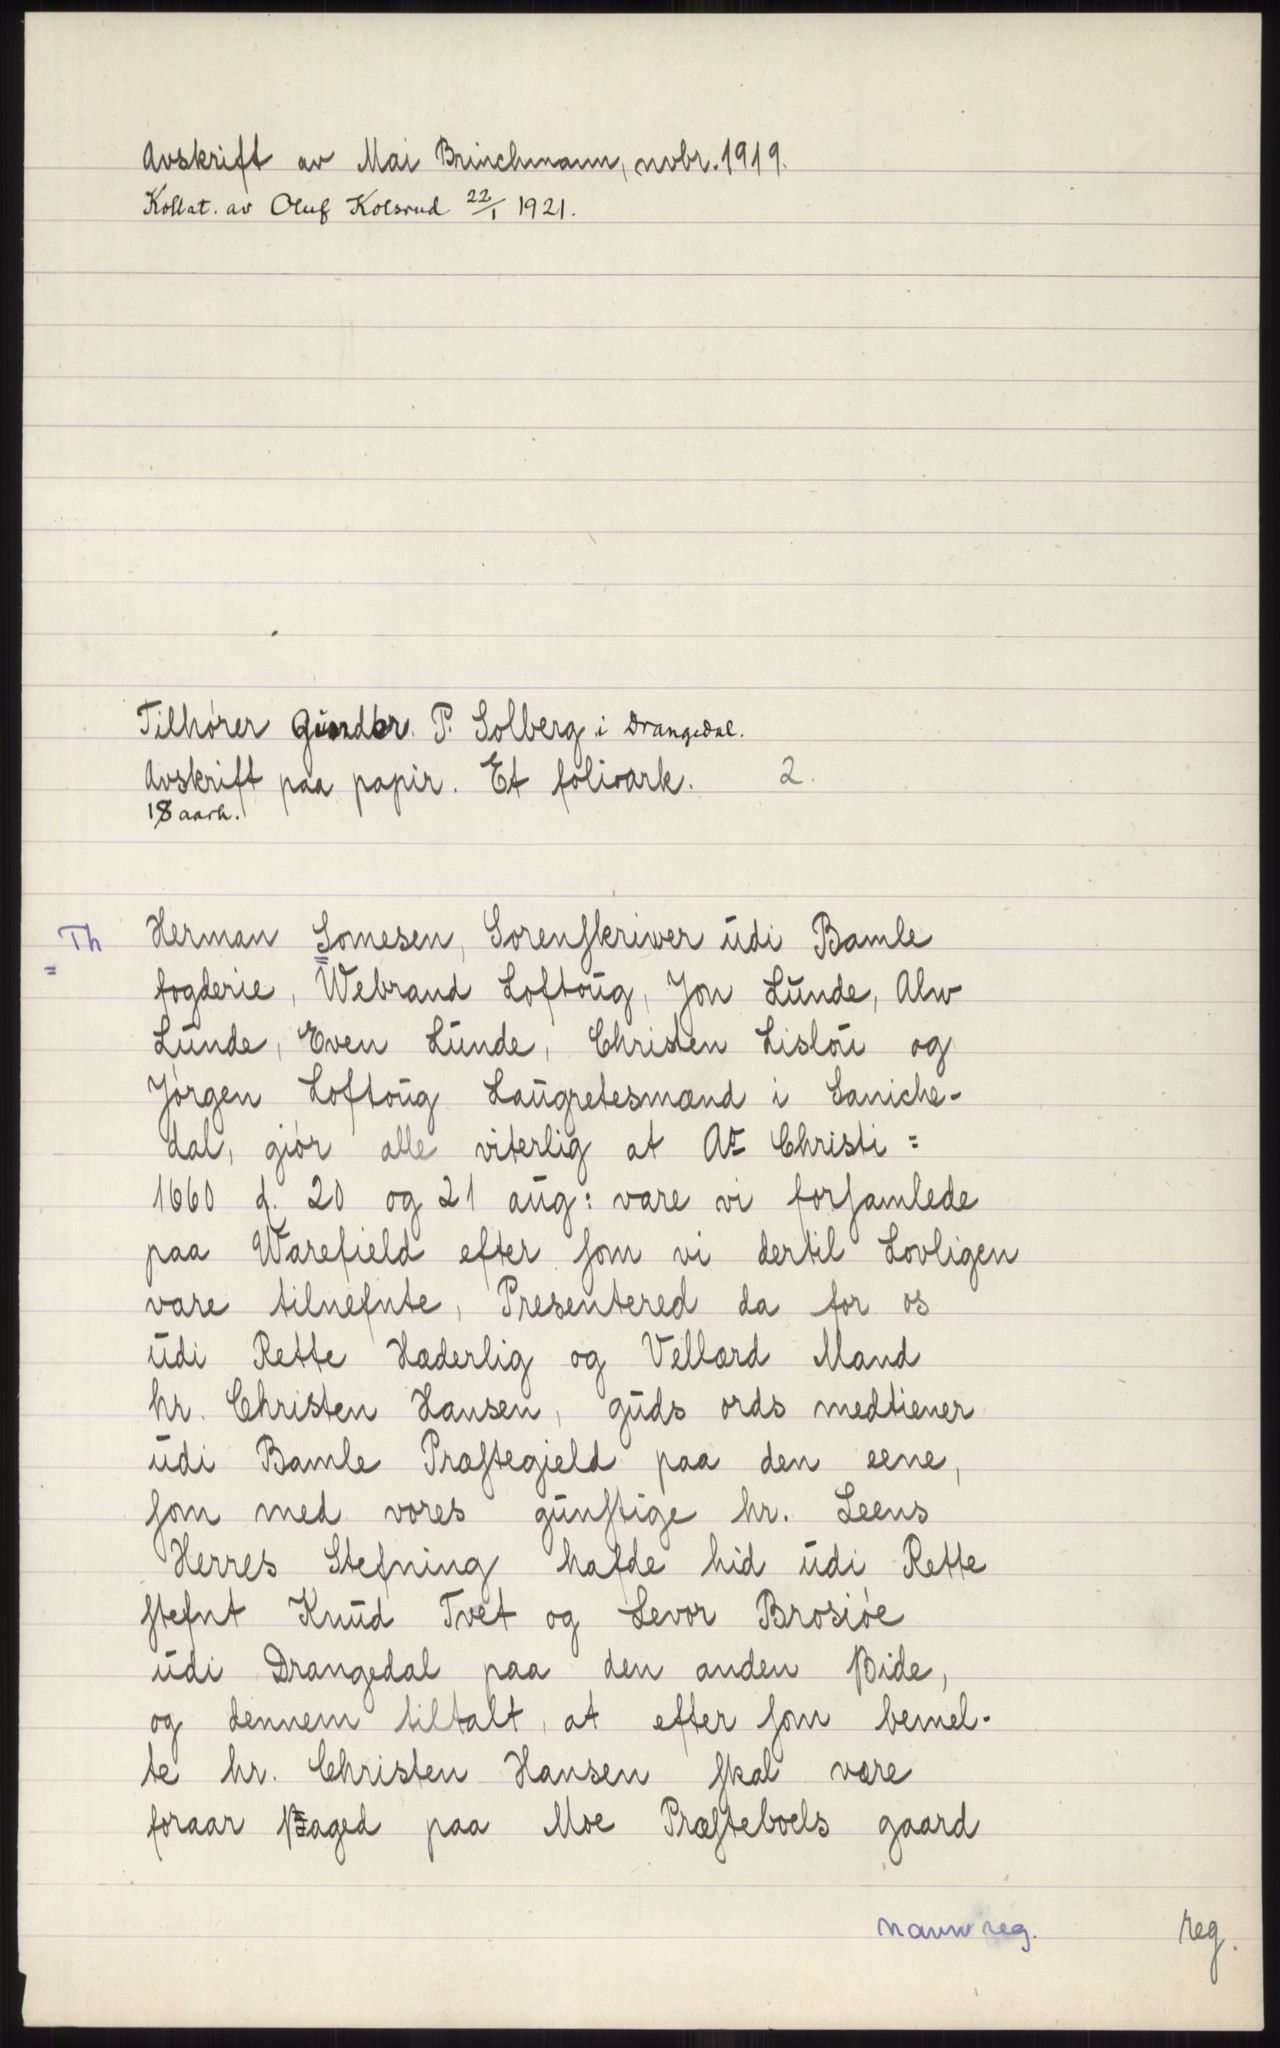 Avskrift av Mai Brinchmann, nvbr. 1919.
Kollat. av Oluf Kolsrud 22/1 1921.
Tilhører P. Solberg i Drangedal.
Avskrift paa papir. Et folioark. 2.
18 aarh.
Th Herman Somesen, Sorenskriwer udi Bamle
fogderie, Webrand Loftoug, Jon Lunde, Alw
Lunde, Even Lunde, Christen Lisløu og
Jørgen Loftoug Laugretesmænd i Saniche-
dal, giør alle viterlig at Ao Christi =
1660 d. 20 og 21 aug: vare vi forsamlede
paa Warefield efter som vi dertil Lovligen
vare tilnefnte, Presentered da for os
udi Rette Hæderlig og Vellærd Mand
hr. Christen Hansen, guds ords medtiener
udi Bamle Præstegield paa den eene,
som med vores gunstige hr. Leens
Herres Stefning hafde hid udi Rette
stefnt Knud Tvet og Levor Brosiøe
udi Drangedal paa den anden Side,
og dennem tiltalt, at efter som bemel-
te hr. Christen Hansen skal være
foraar paa Moe Præsteboels gaard
navnreg. reg.